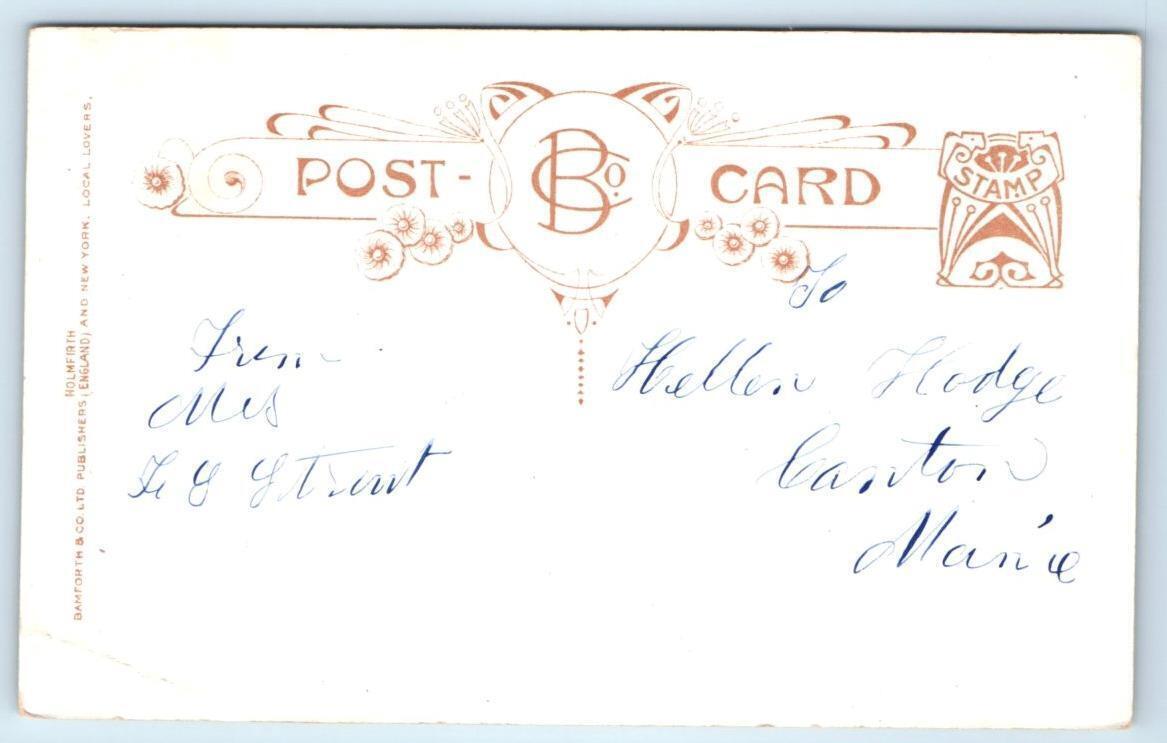 POST-CARD
BCo.
STAMP
BAMFORTH & CO. LTD. PUBLISHERS (HOLMFIRTH ENGLAND) AND NEW YORK. LOCAL LOVERS.
From
Mrs
To
Hellen Hodge
Canton
Maine